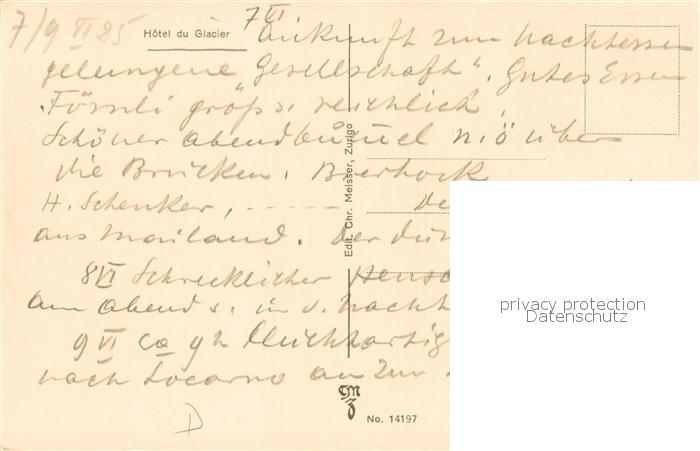 7/9 VI 25
Hôtel du Glacier
7 VI. Ankunft zum Nachtessen
gelungene "Gesellschaft". Gutes Essen
reichlich
Schöner Abendbummel über
die Brücken. Bierhock
H. Schenker, - - - - - - De
aus Mailand. Der
8 VI Schrecklicher
am Abend s. in d. Nacht
9 VI ca 9h
nach Locarno an Zur
Edit. Chr. Meisser, Zurigo
CMZ
No. 14197
D
privacy protection
Datenschutz